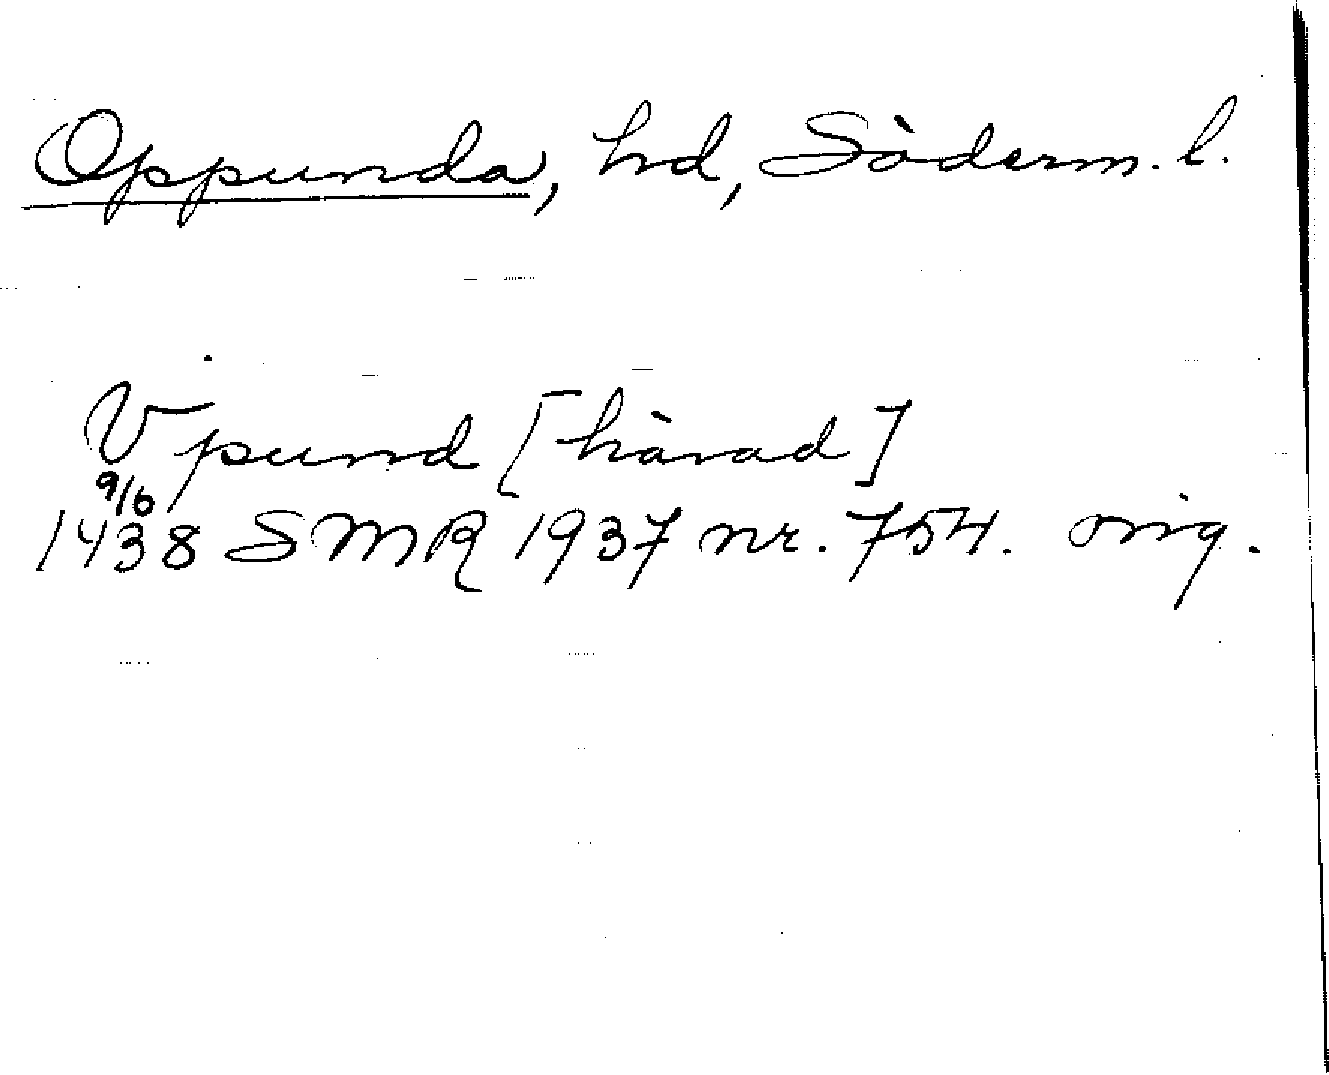 Oppunda, hd, Söderm. l.
Vpund [härad]
9/6
1438 SMR 1937 nr. 754. orig.